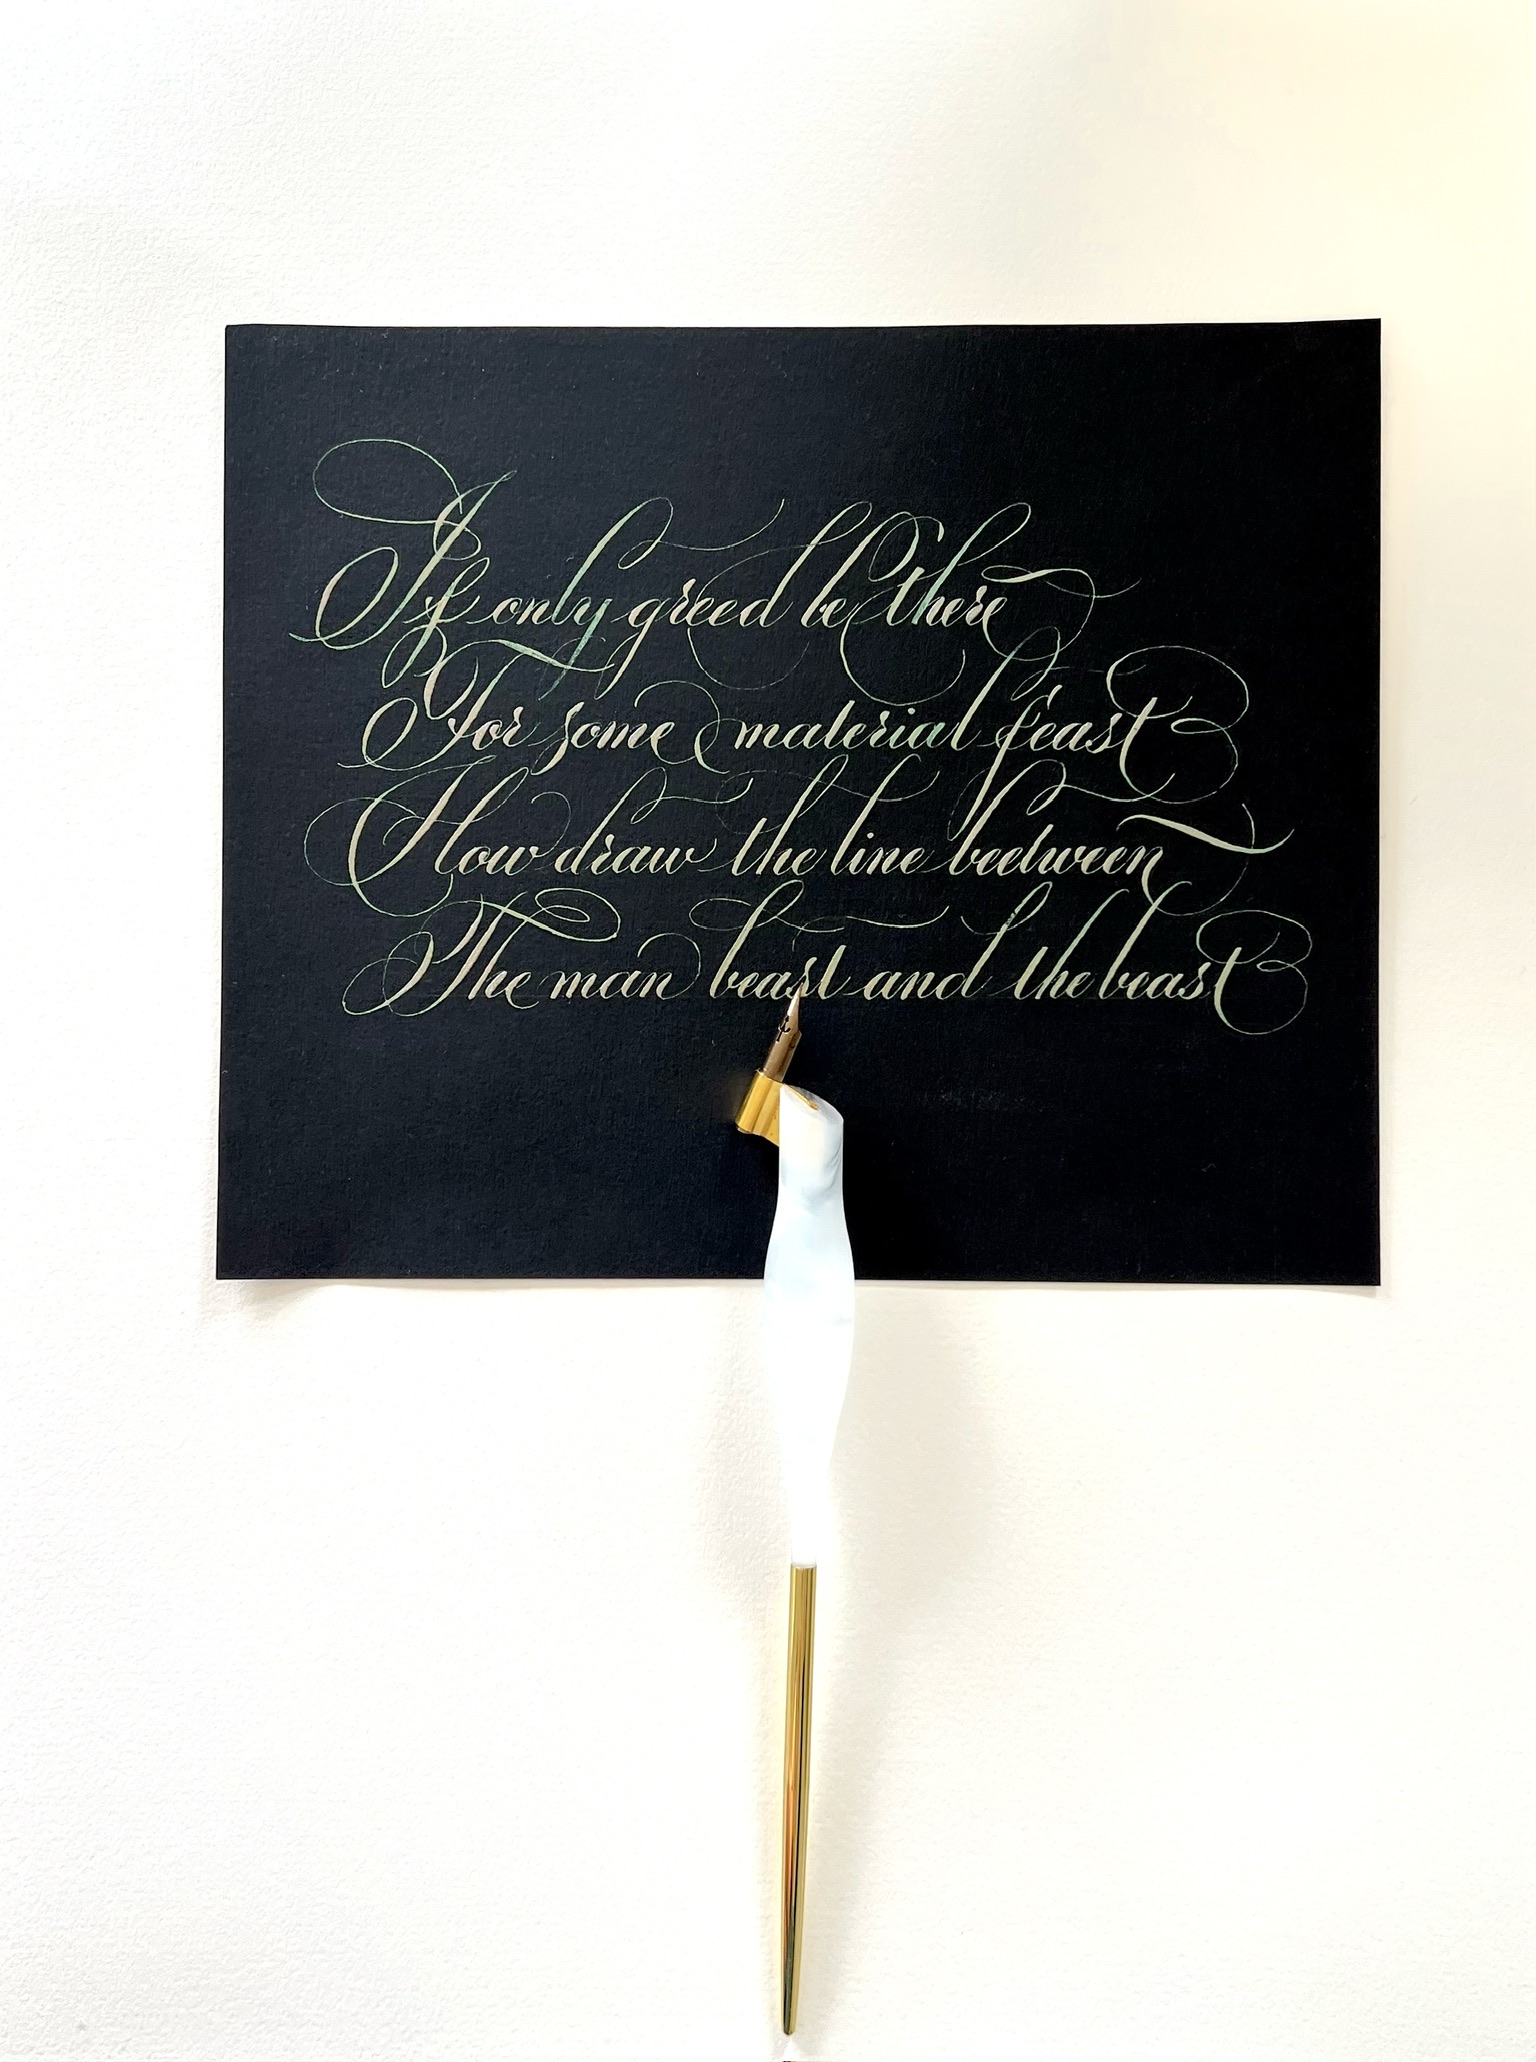 If only greed be there
For some material feast
How draw the line beetween
The man beast and the beast